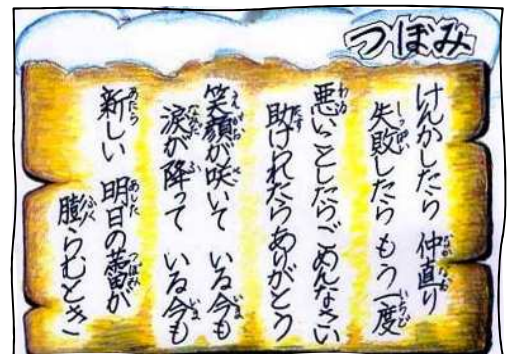 つぼみ
けんかしたら 仲直り
失敗したら もう一度
悪いことしたらごめんなさい
助けれたらありがとう
笑顔が咲いて いる今も
涙が降って いる今も
新しい 明日の蕾が
膨らむとき